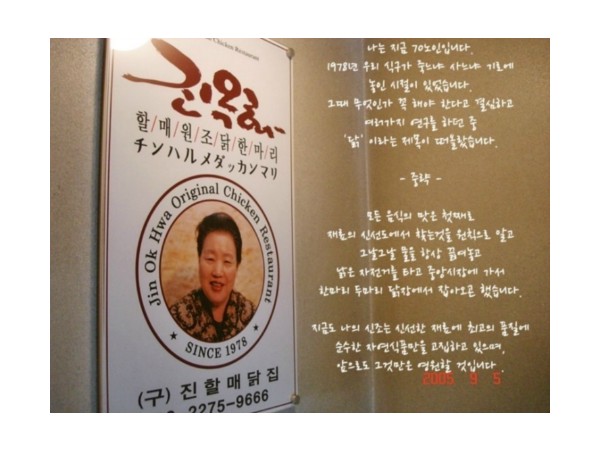 Chicken Restaurant
진옥화
할/매/원/조/닭/한/마/리
チンハルメダッカンマリ
Jin Ok Hwa Original Chicken Restaurant
★ SINCE 1978 ★
(구) 진할매닭집
2275-9666
나는 지금 70노인입니다.
1978년 우리 식구가 죽느냐 사느냐 기로에
놓인 시절이 있었습니다.
그때 무엇인가 꼭 해야 한다고 결심하고
여러가지 연구를 하던 중
'닭' 이라는 제목이 떠올랐습니다.
- 중략 -
모든 음식의 맛은 첫째로
재료의 신선도에서 찾는것을 원칙으로 알고
그날그날 물을 항상 끓여놓고
낡은 자전거를 타고 중앙시장에 가서
한마리 두마리 닭장에서 잡아오곤 했습니다.
지금도 나의 신조는 신선한 재료에 최고의 품질에
순수한 자연식품만을 고집하고 있으며,
앞으로도 그것만은 영원할 것입니다.
2005 9 5